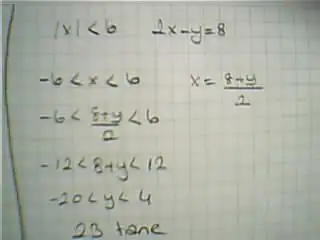 |x| < 6    2x - y = 8
-6 < x < 6    x = (8+y)/2
-6 < (8+y)/2 < 6
-12 < 8+y < 12
-20 < y < 4
23 tane